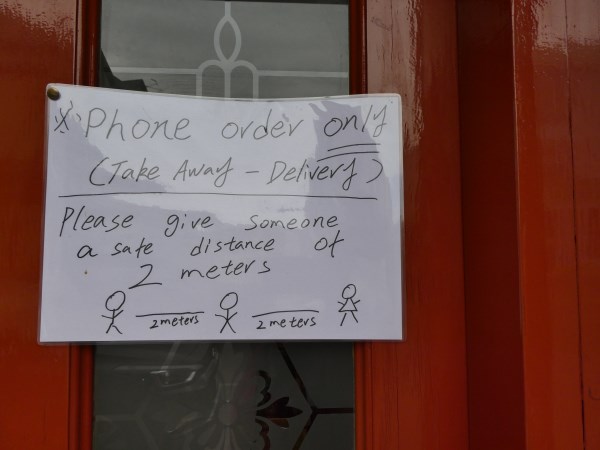 ※ Phone order only
(Take Away - Delivery)
Please give someone
a safe distance of
2 meters
2 meters 2 meters